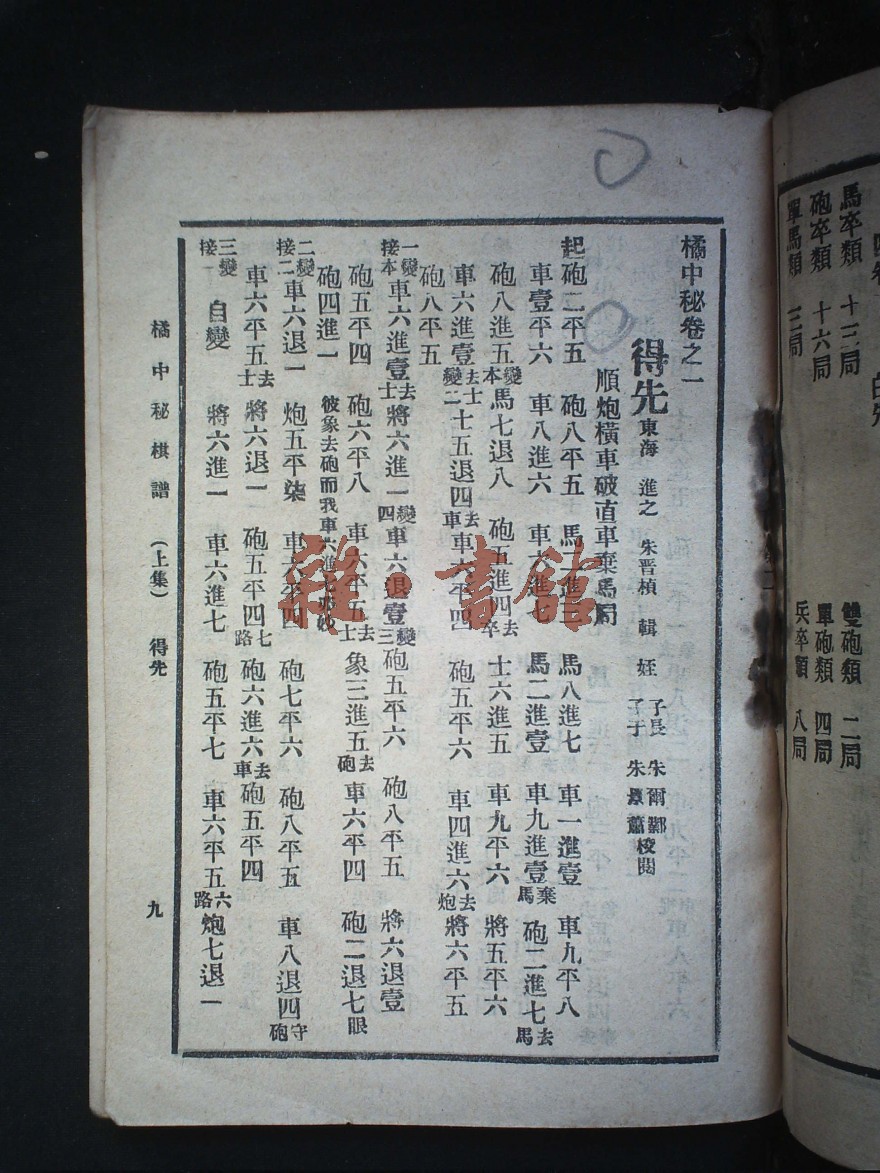 馬卒類 十三局 雙砲類 二局
砲卒類 十六局 單砲類 四局
單馬類 三局 兵卒類 八局
橘中秘卷之一
得先 東海 進之 朱晋楨 輯 姪 子長 朱爾鄴 朱景蕭 校閱
順炮橫車破直車棄馬局
起砲二平五 砲八平五 馬二進三 馬八進七 車一進壹 車九平八
車壹平六 車八進六 車六進七 馬二進壹 車九進壹棄馬 砲二進七去馬
砲八進五變本 馬七退八 砲五進四去卒 士六進五 車九平六 將五平六
車六進壹去士變二 士五退四去車 車六平四 砲五平六 車四進六去炮 將六平五
砲八平五
一變接本 車六進壹去士 將六進一變四 車六退壹變三 砲五平六 砲八平五 將六退壹
砲五平四 砲六平八 車六平五去士 象三進五去砲 車六平四 砲二退七眼
砲四進一 彼象去砲而我車六進七亦妙
二變接二 車六退一 炮五平柒 車六平四 砲七平六 砲八平五 車八退四守砲
車六平五去士 將六退一 砲五平四七路 砲六進六去車 砲五平四
三變接一 自變 將六進一 車六進七 砲五平七 車六平五六路 炮七退一
橘中秘棋譜 (上集) 得先 九
雜·書館